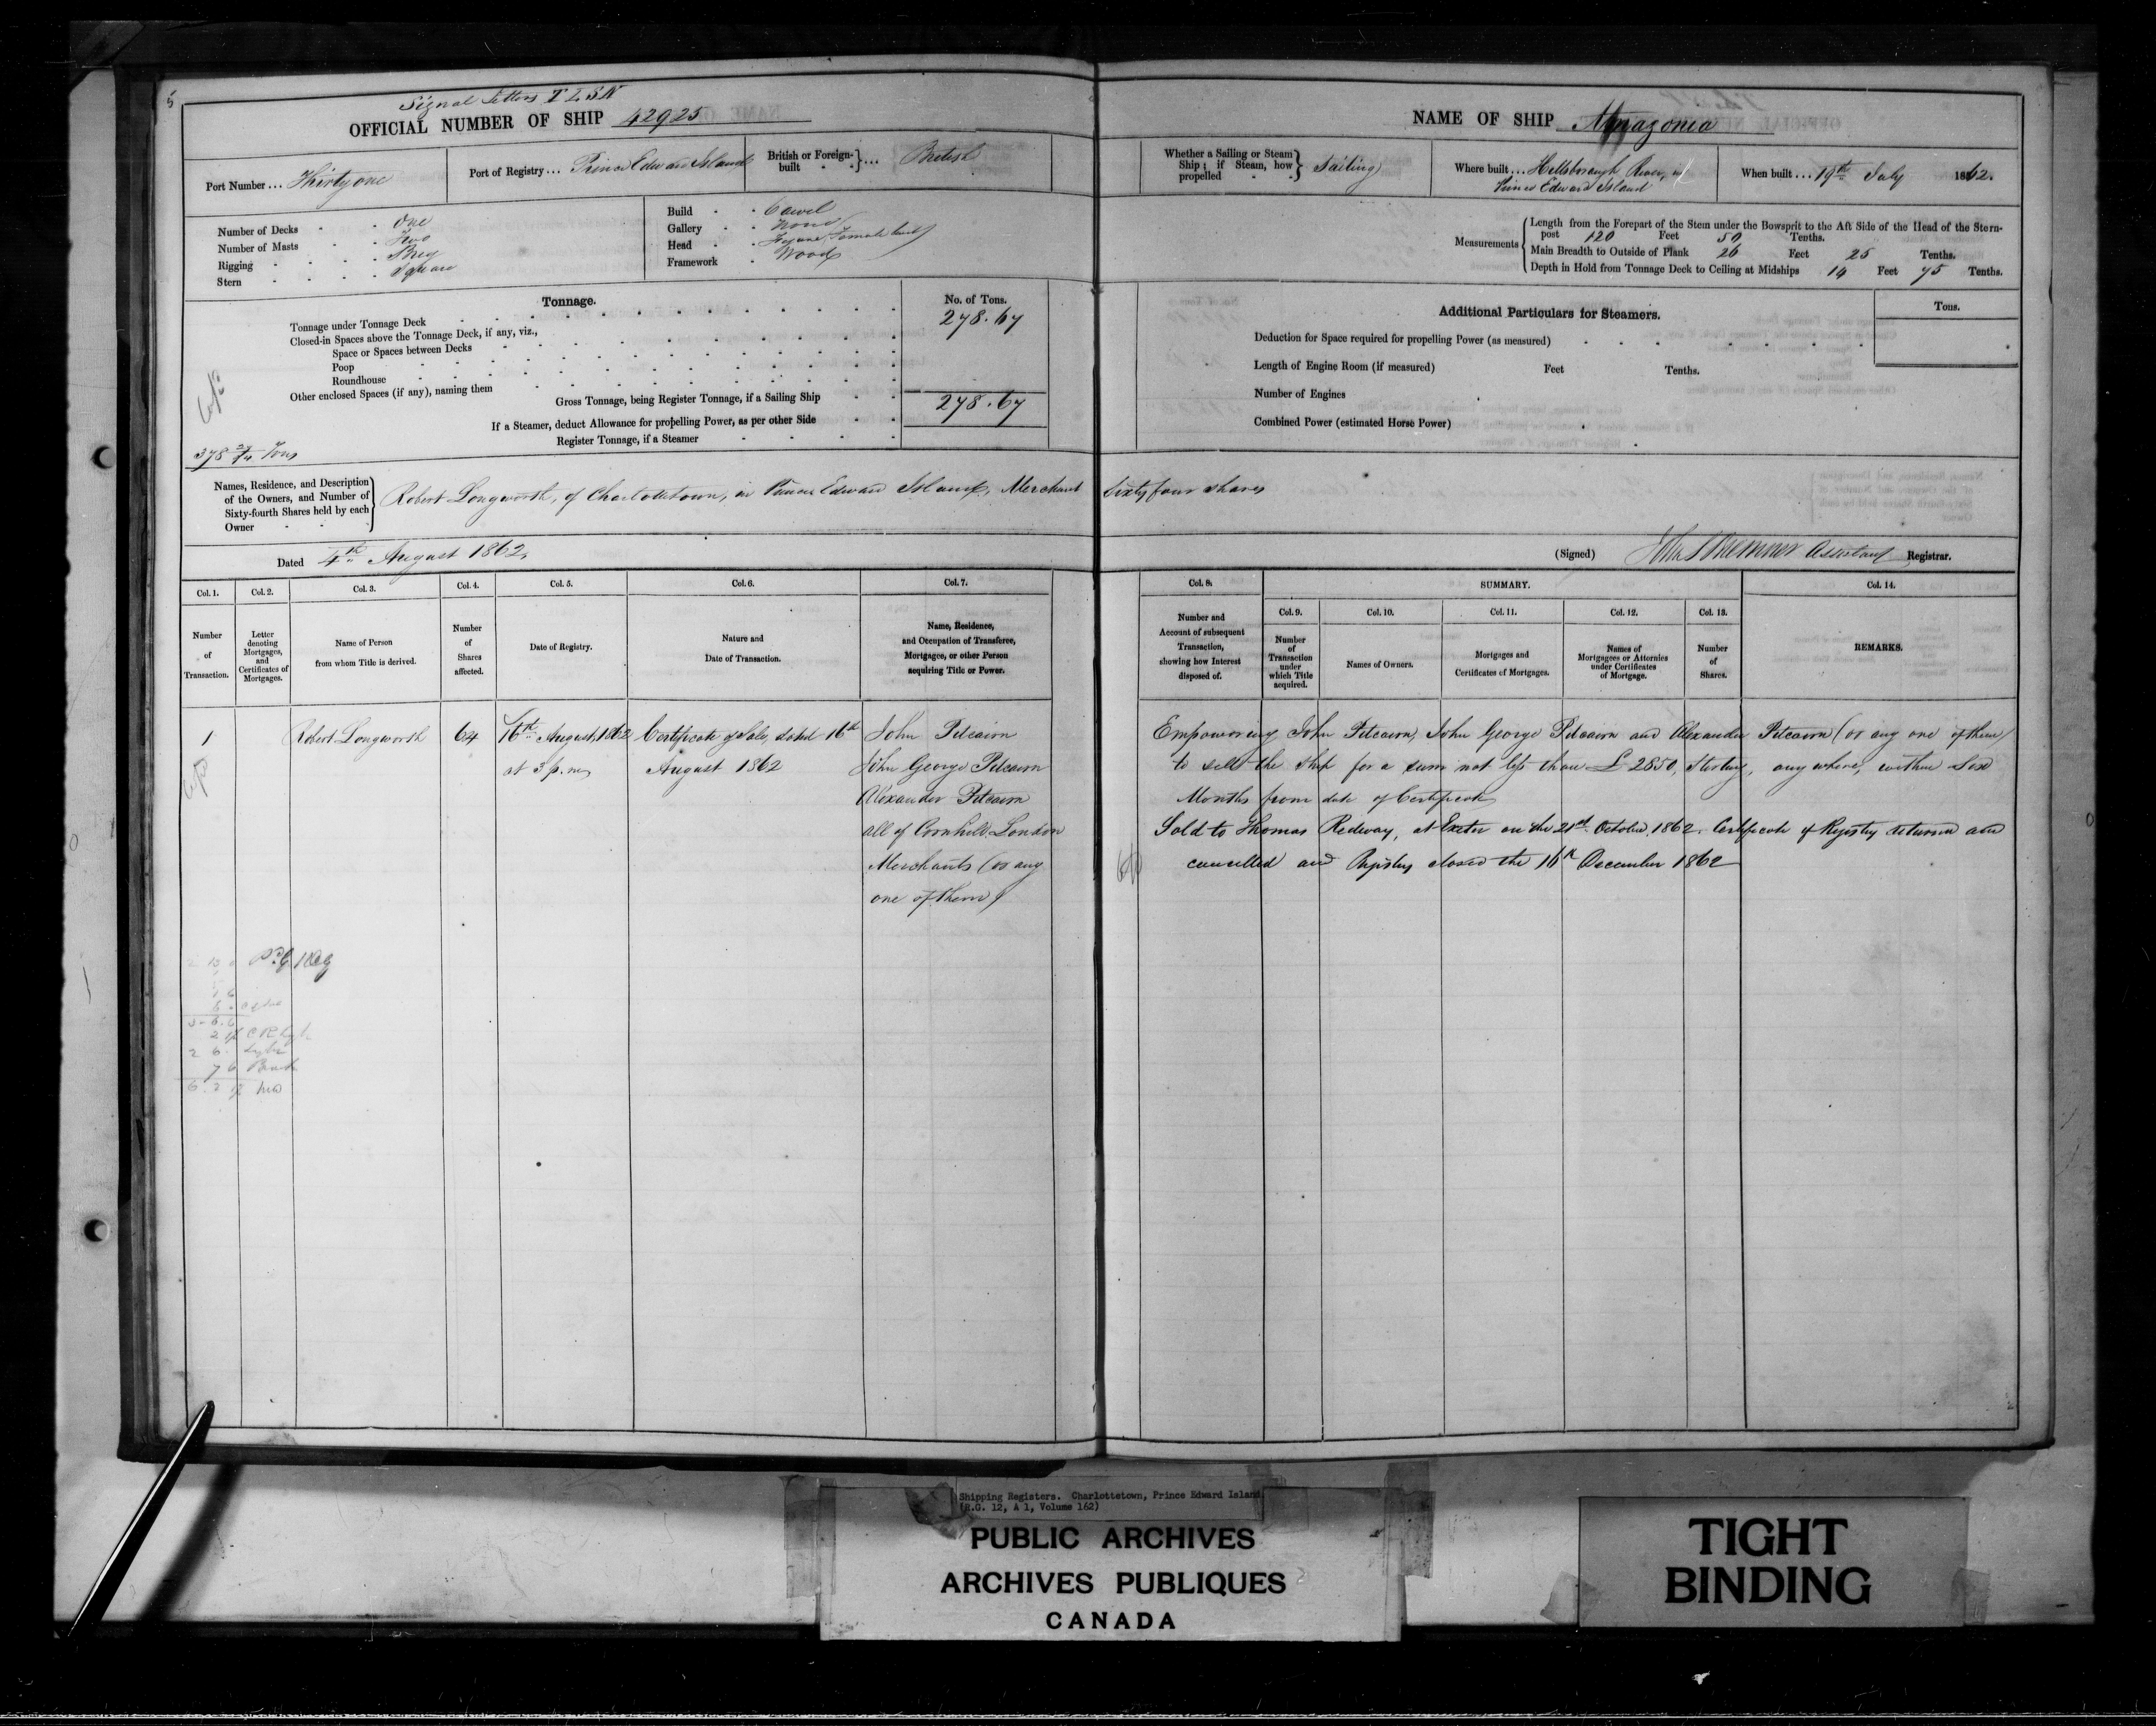 5
Signal Letters T L S N
OFFICIAL NUMBER OF SHIP 42925
Port Number ... Thirty one
Port of Registry ... Prince Edward Island
British or Foreign-built } ... British
Number of Decks . . One
Number of Masts . . Two
Rigging . . . . Brig
Stern . . . . Square
Build . . Carvel
Gallery . . None
Head . . Figure, Female bust
Framework . Wood
Tonnage.
No. of Tons.
Tonnage under Tonnage Deck 278.67
Closed-in Spaces above the Tonnage Deck, if any, viz.,
Space or Spaces between Decks
Poop
Roundhouse
Other enclosed Spaces (if any), naming them
Gross Tonnage, being Register Tonnage, if a Sailing Ship 278.67
If a Steamer, deduct Allowance for propelling Power, as per other Side
Register Tonnage, if a Steamer
378 Tons
Names, Residence, and Description of the Owners, and Number of Sixty-fourth Shares held by each Owner
Robert Longworth, of Charlottetown, in Prince Edward Island, Merchant
Dated 4th August 1862.
Col. 1. Col. 2. Col. 3. Col. 4. Col. 5. Col. 6. Col. 7.
Number of Transaction.
Letter denoting Mortgages, and Certificates of Mortgages.
Name of Person from whom Title is derived.
Number of Shares affected.
Date of Registry.
Nature and Date of Transaction.
Name, Residence, and Occupation of Transferee, Mortgagee, or other Person acquiring Title or Power.
1 Robert Longworth 64 16th August, 1862 Certificate of Sale, dated 16th John Pitcairn
at 3 p.m. August 1862 John George Pitcairn
Alexander Pitcairn
all of Cornhill London
Merchants (or any
one of them)
NAME OF SHIP Amazonia
Whether a Sailing or Steam Ship; if Steam, how propelled } Sailing
Where built ... Hillsborough River, in
Prince Edward Island
When built ... 19th July 1862.
Measurements
Length from the Forepart of the Stem under the Bowsprit to the Aft Side of the Head of the Stern-
post 120 Feet 50 Tenths.
Main Breadth to Outside of Plank 26 Feet 25 Tenths.
Depth in Hold from Tonnage Deck to Ceiling at Midships 14 Feet 75 Tenths.
Additional Particulars for Steamers.
Tons.
Deduction for Space required for propelling Power (as measured)
Length of Engine Room (if measured) Feet Tenths.
Number of Engines
Combined Power (estimated Horse Power)
Sixty four shares
(Signed) Assistant Registrar.
Col. 8. SUMMARY. Col. 14.
Col. 9. Col. 10. Col. 11. Col. 12. Col. 13.
Number and Account of subsequent Transaction, showing how Interest disposed of.
Number of Transaction under which Title acquired.
Names of Owners.
Mortgages and Certificates of Mortgages.
Names of Mortgagees or Attornies under Certificates of Mortgage.
Number of Shares.
REMARKS.
Empowering John Pitcairn, John George Pitcairn and Alexander Pitcairn (or any one of them)
to sell the Ship for a sum not less than £2850, Sterling, any where, within Six
Months from date of Certificate
Sold to Thomas Redway, at Exeter on the 21st October, 1862. Certificate of Registry returned and
cancelled and Registry closed the 16th December 1862
Shipping Registers. Charlottetown, Prince Edward Island.
(R.G. 12, A 1, Volume 162)
PUBLIC ARCHIVES
ARCHIVES PUBLIQUES
CANADA
TIGHT
BINDING